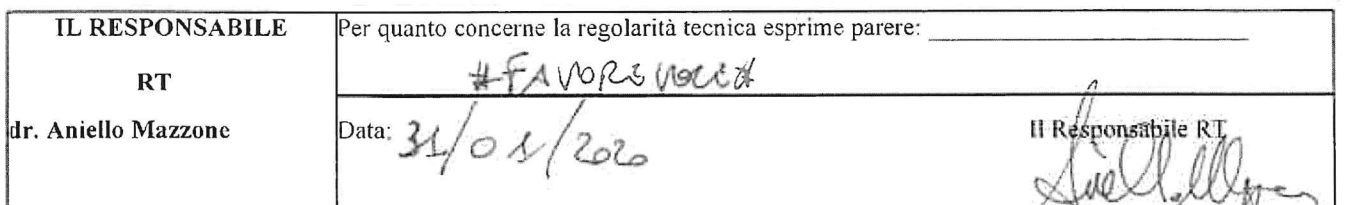 IL RESPONSABILE
RT
dr. Aniello Mazzone
Per quanto concerne la regolarità tecnica esprime parere:
#FAVOREVOLE#
Data: 31/01/2020
Il Responsabile RT